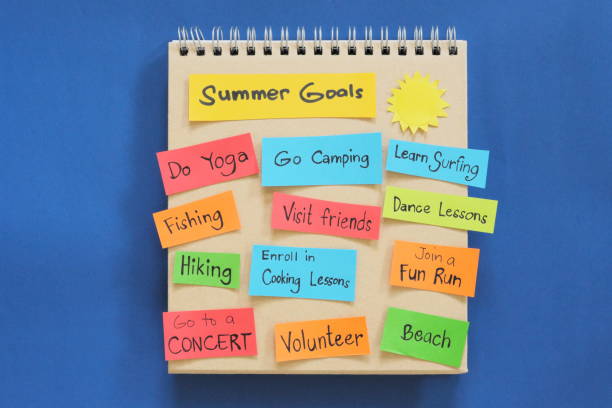 Summer Goals
Do Yoga
Go Camping
Learn Surfing
Fishing
Visit friends
Dance Lessons
Hiking
Enroll in
Cooking Lessons
Join a
Fun Run
Go to a
CONCERT
Volunteer
Beach